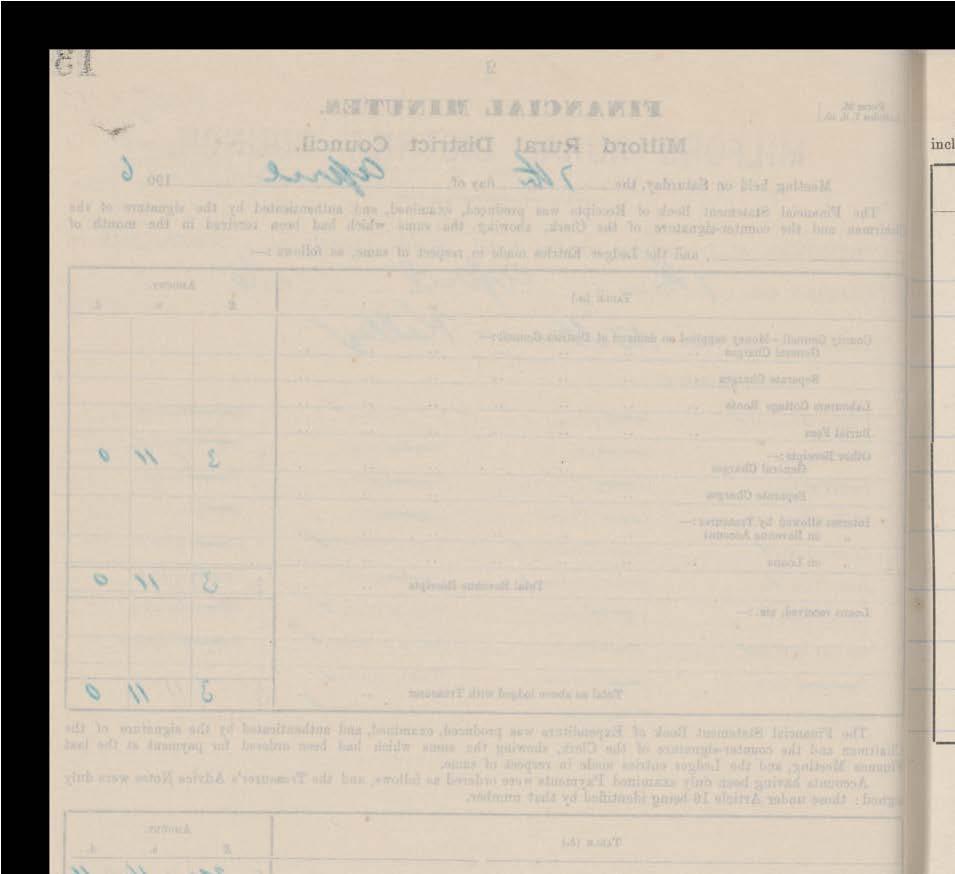 15
2
FINANCIAL MINUTES.
Form 36.
Milford Rural District Council.
Meeting held on Saturday, the 7th day of April 190 6
The Financial Statement Book of Receipts was produced, examined, and authenticated by the signature of the
Chairman and the counter-signature of the Clerk, showing the sums which had been received in the month of
, and the Ledger Entries made in respect of same, as follows :—
TABLE (a.) AMOUNT.
£ s. d.
County Council—Money supplied on demand of District Council:—
General Charges
Separate Charges
Labourers Cottage Rents
Burial Fees
Other Receipts:—
General Charges 3 11 0
Separate Charges
Interest allowed by Treasurer:—
" on Revenue Account
" on Loans
Total Revenue Receipts 3 11 0
Loans received, viz.:—
Total as above lodged with Treasurer 3 11 0
The Financial Statement Book of Expenditure was produced, examined, and authenticated by the signature of the
Chairman and the counter-signature of the Clerk, showing the sums which had been ordered for payment at the last
Finance Meeting, and the Ledger entries made in respect of same.
Accounts having been duly examined Payments were ordered as follows, and the Treasurer's Advice Notes were duly
signed: those under Article 16 being identified by that number.
TABLE (b.) AMOUNT.
£ s. d.
incl